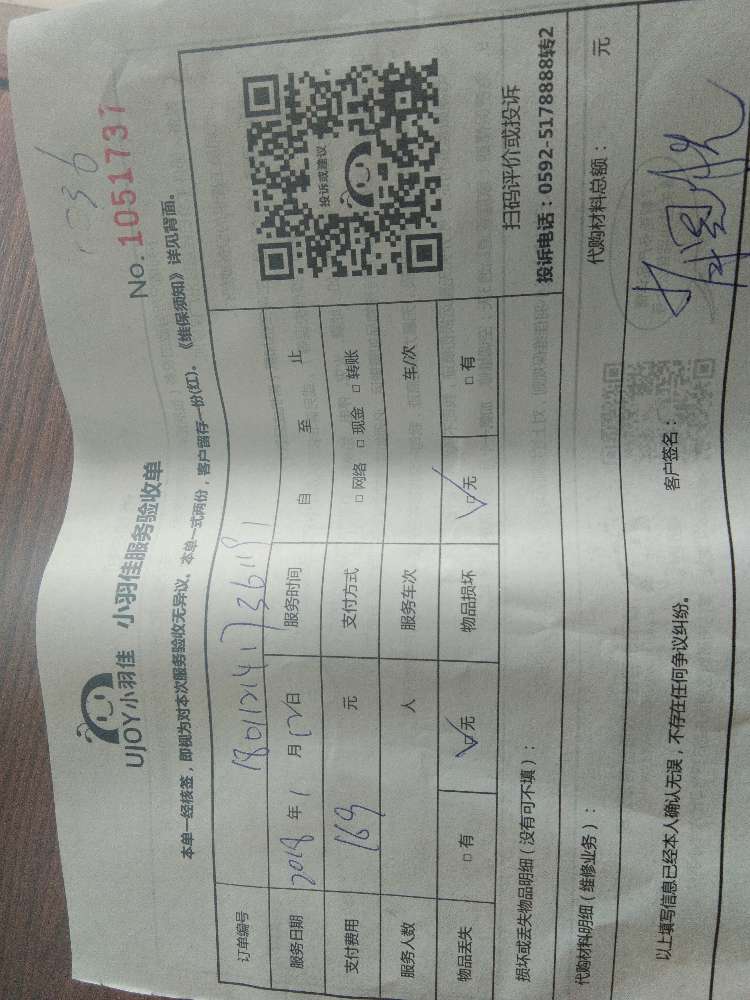 UJOY小羽佳 小羽佳服务验收单
No. 1051737
本单一经核签，即视为对本次服务验收无异议。本单一式两份，客户留存一份(红)。《维保须知》详见背面。
订单编号
服务日期 2018 年 1 月 12 日 服务时间 自 至 止
支付费用 169 元 支付方式 □ 网络 □ 现金 □ 转账
服务人数 人 服务车次 车/次
物品丢失 □ 有 □ 无 物品损坏 □ 无 □ 有
投诉或建议
扫码评价或投诉
投诉电话：0592-5178888转2
损坏或丢失物品明细（没有可不填）：
代购材料明细（维修业务）： 代购材料总额： 元
以上填写信息已经本人确认无误，不存在任何争议纠纷。 客户签名：